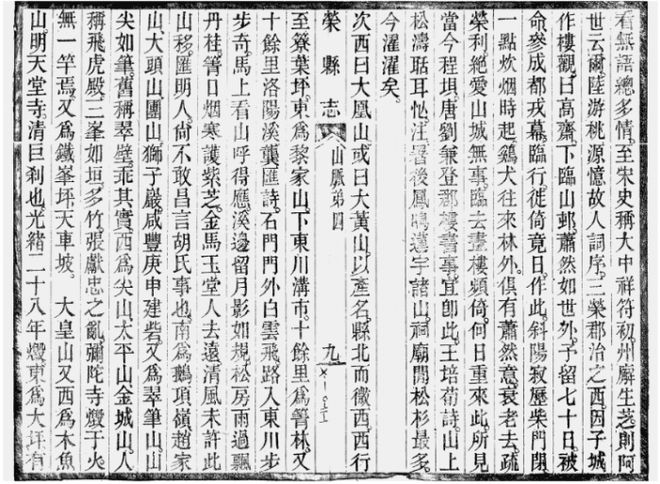 看無語總多情。至宋史稱大中祥符初。州廨生芝。則阿
世云爾。陸游桃源憶故人詞序。三榮郡治之西。因子城
作樓觀。曰高齋。下臨山邨。蕭然如世外。予留七十日。被
命參成都戎幕。臨行。徙倚竟日。作此。斜陽寂歷柴門閉。
一點炊烟時起。鷄犬往來林外。俱有蕭然意。衰老去疏
榮利。絕愛山城無事。臨去畫樓頻倚。何日重來此。所見
當今程垻。唐劉兼登郡樓書事。宜卽此。王培荀詩。山上
松濤聒耳。注署後鳳鳴連宇諸山。祠廟間松杉最多。
今濯濯矣。
榮縣志
山脈第四
九
次西曰大凰山。或曰大黃山。以產名。縣北而徽西。西行
至簝葉坪。東爲黎家山。下東川溝市。十餘里爲箐林。又
十餘里洛陽溪。龔匯詩。石門門外白雲飛。路入東川步
步奇。馬上看山呼得應。溪邊留月影如規。松房雨過飄
丹桂。箐口烟寒護紫芝。金馬玉堂人去遠。清風未許此
山移。匯明人。尚不敢昌言胡氏事也。南爲鵝項嶺。趙家
山。大頭山。團山。獅子巖。咸豐庚申建砦。又爲翠筆山。山
尖如筆。舊稱翠壁。乖其實。西爲尖山。太平山。金城山。人
稱飛虎殿。三峯如垣。多竹。張獻忠之亂。彌陀寺燬于火。
無一竿焉。又爲鐵峯坪。天車坡。　大皇山又西爲木魚
山。明天堂寺。清巨刹也。光緒二十八年燬。東爲大洋有